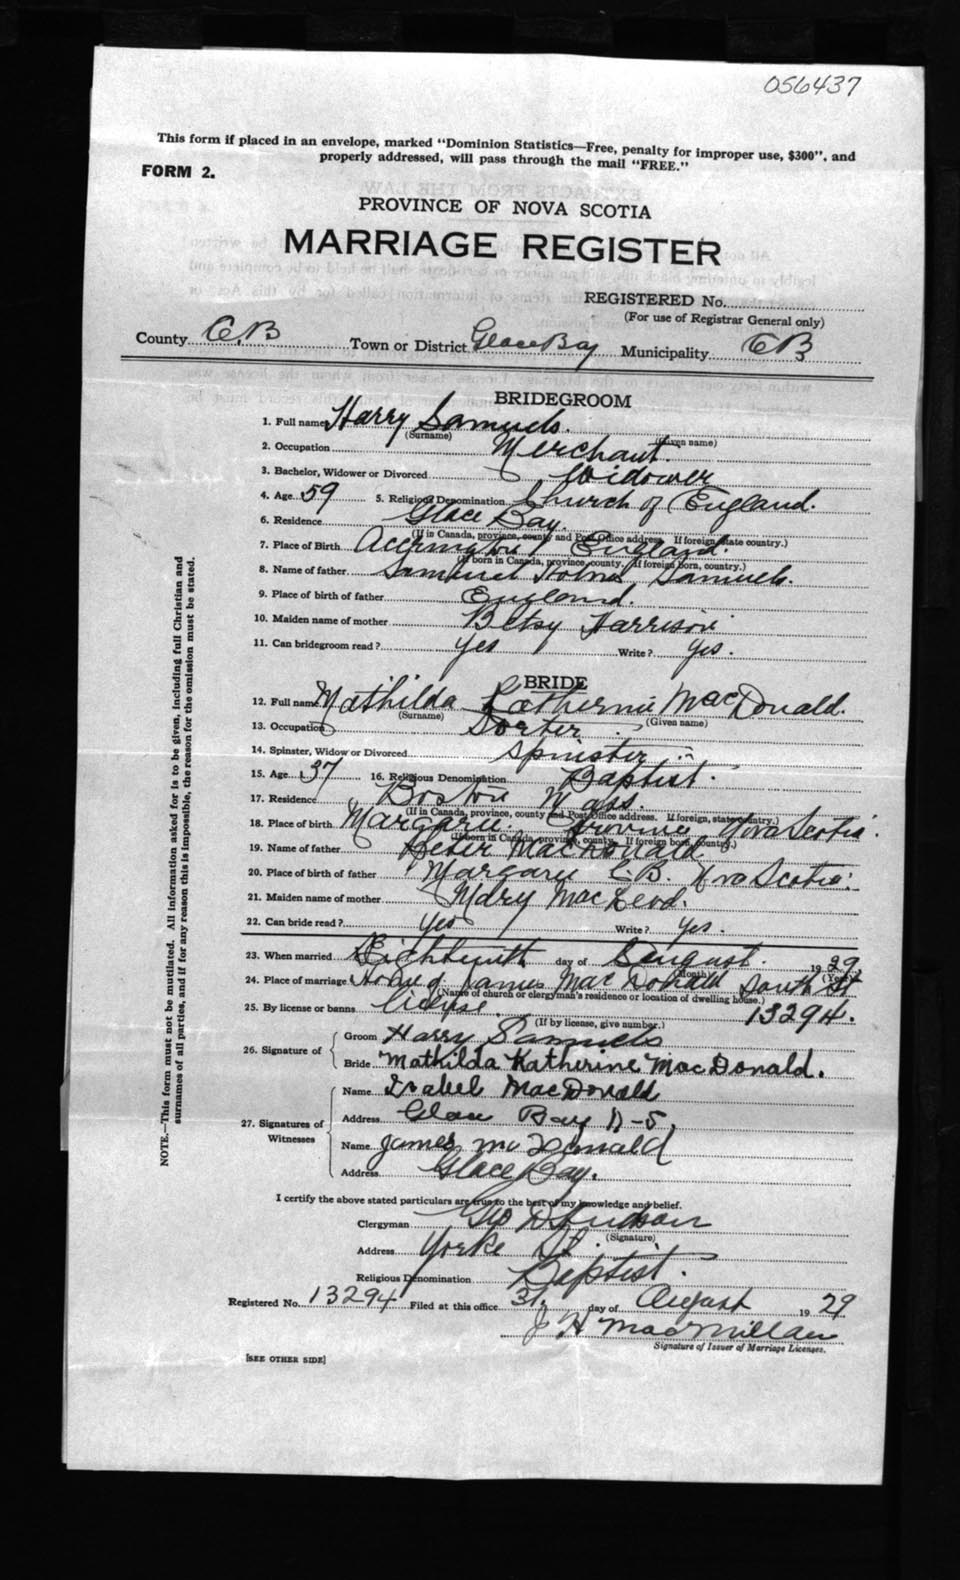 056437
This form if placed in an envelope, marked "Dominion Statistics—Free, penalty for improper use, $300", and
properly addressed, will pass through the mail "FREE."
FORM 2.
PROVINCE OF NOVA SCOTIA
MARRIAGE REGISTER
REGISTERED No.
(For use of Registrar General only)
County C.B Town or District Glace Bay Municipality CB
BRIDEGROOM
1. Full name Harry Samuels.
(Surname) (Given name)
2. Occupation Merchant.
3. Bachelor, Widower or Divorced Widower
4. Age 59 5. Religious Denomination Church of England.
6. Residence Glace Bay.
(If in Canada, province, county and Post Office address. If foreign, state country.)
7. Place of Birth Accrington England.
(If born in Canada, province, county. If foreign born, country.)
8. Name of father Samuel Samuels.
9. Place of birth of father England.
10. Maiden name of mother Betsy Harrison
11. Can bridegroom read? Yes Write? Yes.
BRIDE
12. Full name Mathilda Katherine MacDonald.
(Surname) (Given name)
13. Occupation Sorter
14. Spinster, Widow or Divorced Spinster
15. Age 37 16. Religious Denomination Baptist.
17. Residence Boston Mass.
(If in Canada, province, county and Post Office address. If foreign, state country.)
18. Place of birth Margaree. Province Nova Scotia.
(If born in Canada, province, county. If foreign born, country.)
19. Name of father Peter MacDonald
20. Place of birth of father Margaree C.B. Nova Scotia.
21. Maiden name of mother Mary MacLeod.
22. Can bride read? Yes Write? Yes.
23. When married Eighteenth day of August. 1929
(Month) (Year)
24. Place of marriage Home of James MacDonald South St
(Name of church or clergyman's residence or location of dwelling house.)
25. By license or banns License. 13294.
(If by license, give number.)
26. Signature of Groom Harry Samuels
Bride Mathilda Katherine MacDonald.
27. Signatures of Witnesses Name Isabel MacDonald
Address Glace Bay
Name James McDonald
Address Glace Bay.
I certify the above stated particulars are true to the best of my knowledge and belief.
Clergyman Geo D Hudson
(Signature)
Address Yorke St.
Religious Denomination Baptist.
Registered No. 13294 Filed at this office 31. day of August 1929
J H MacMillan
Signature of Issuer of Marriage Licenses.
[SEE OTHER SIDE]
NOTE.—This form must not be mutilated. All information asked for is to be given, including full Christian and
surnames of all parties, and if for any reason this is impossible, the reason for the omission must be stated.